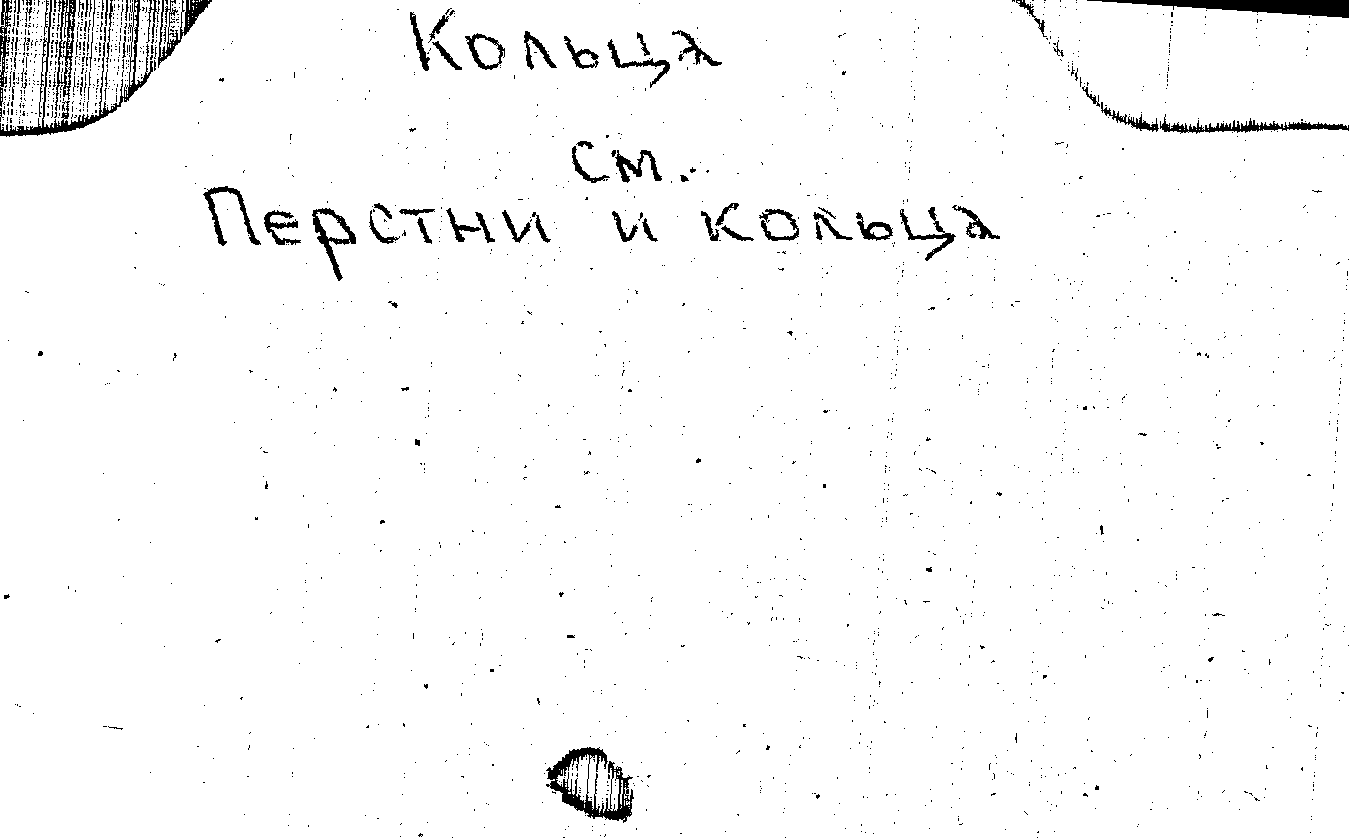 Кольца
см.
Перстни и кольца